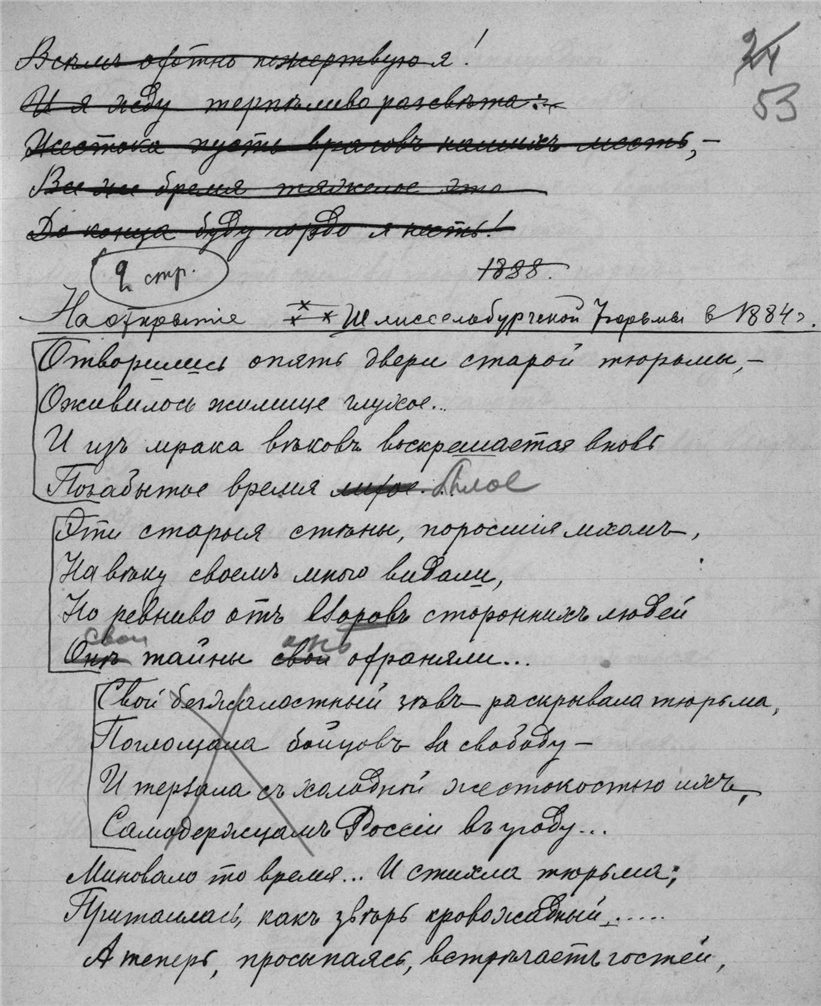 Всѣмъ охотно пожертвую я!
24
53
И я жду терпѣливо разсвѣта:
Жестока пусть враговъ нашихъ месть,—
Все же бремя тяжелое это
До конца буду гордо я несть!
1888.
2 стр.
На открытіе *** Шлиссельбургской Тюрьмы в 1884 г.
Отворились опять двери старой тюрьмы,—
Оживилось жилище глухое...
И изъ мрака вѣковъ воскрешается вновь
Позабытое время лихое. Былое
Эти старыя стѣны, поросшія мхомъ,
На вѣку своемъ много видали,
Но ревниво отъ взоровъ стороннихъ людей
свои онѣ
Онѣ тайны свои охраняли...
Свой безжалостный зѣвъ раскрывала тюрьма,
Поглощала бойцовъ за свободу—
И терзала съ холодной жестокостью ихъ,
Самодержцамъ Россіи въ угоду...
Миновало то время... И стихла тюрьма;
Притаилась, какъ звѣрь кровожадный,.....
А теперь, просыпаясь, встрѣчаетъ гостей,